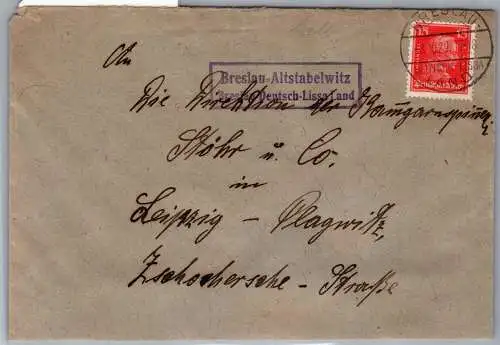 BRESLAU
15
Deutsches Reich
An
Breslau-Altstabelwitz
Breslau Deutsch-Lissa Land
Die Direktion der Kammgarnspinnerei
Stöhr u. Co.
in
Leipzig - Plagwitz,
Zschochersche - Straße